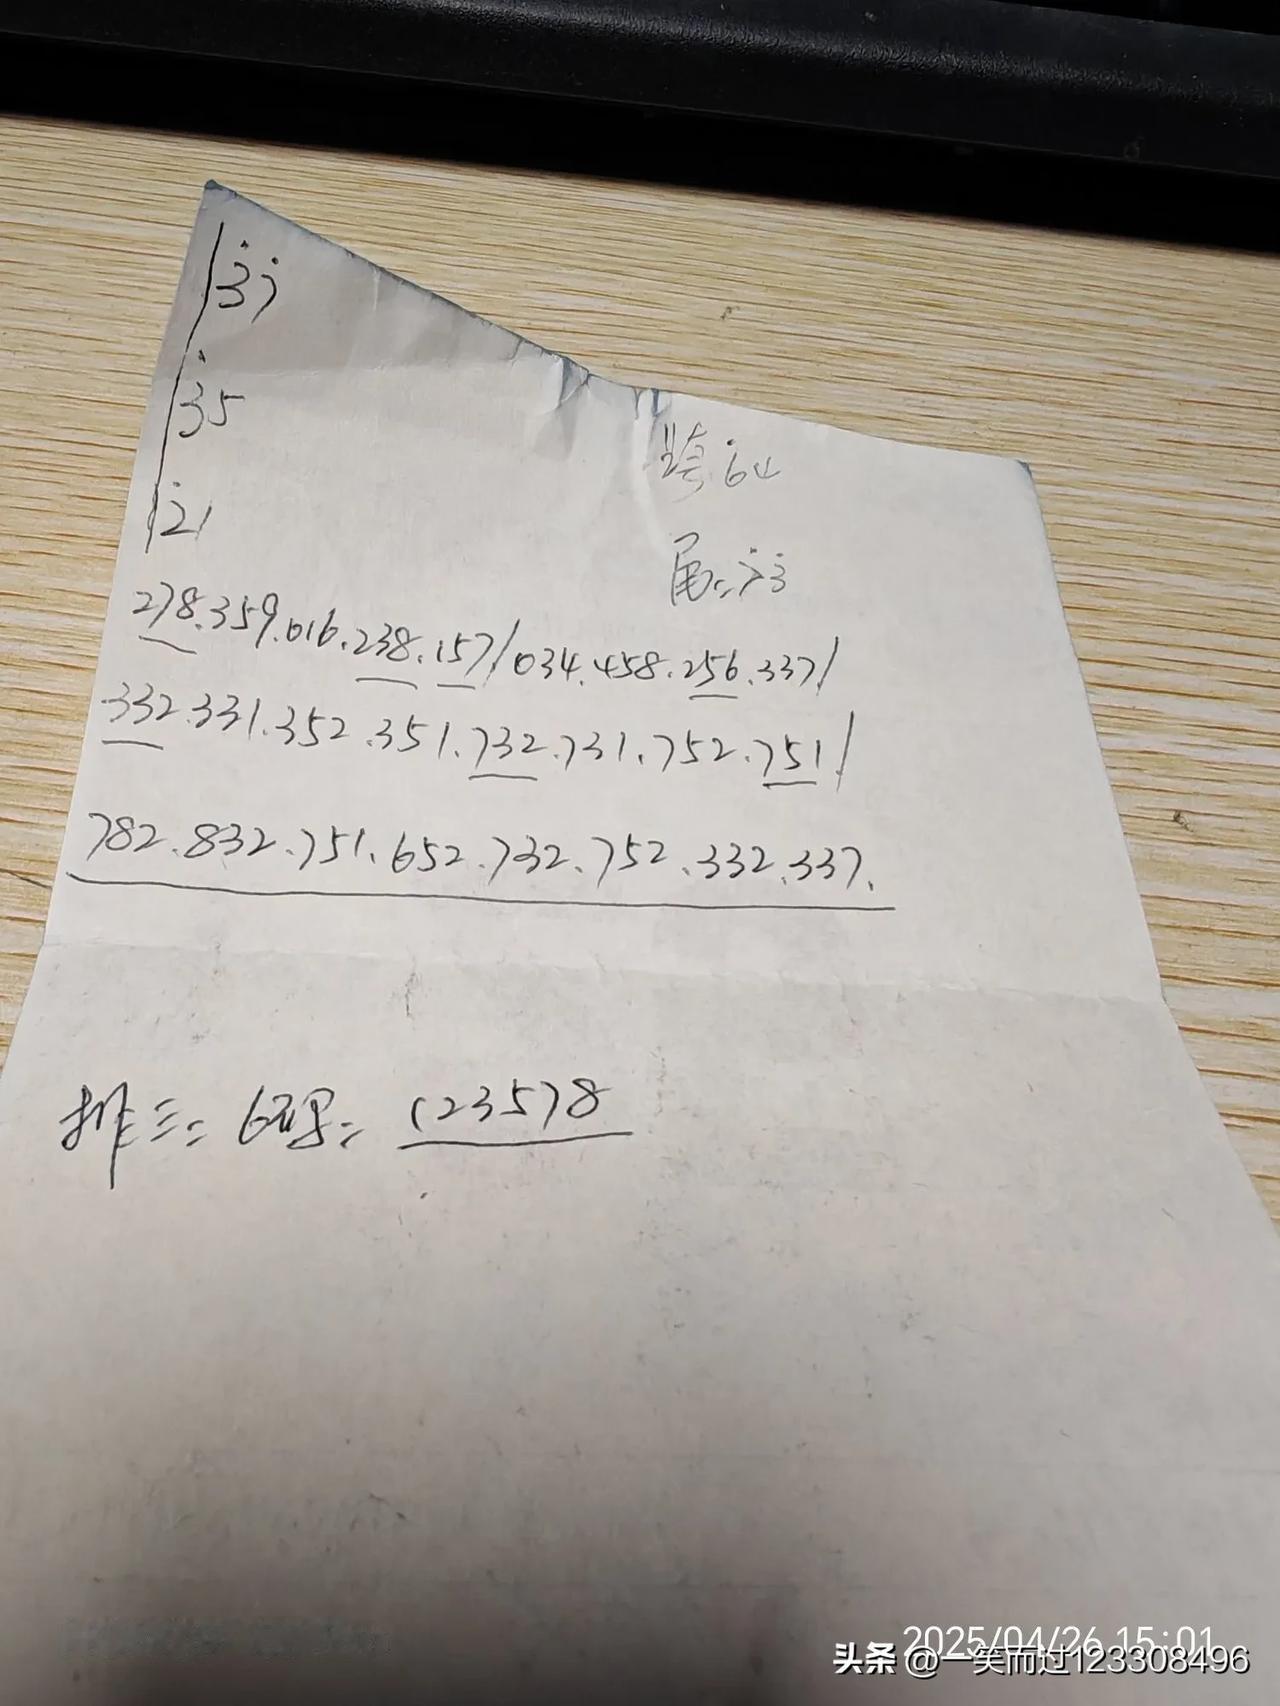 37
35
跨:64
21
尾:73
278.359.016.238.157/034.458.256.337/
332.331.352.351.732.731.752.751/
782.832.751.652.732.752.332.337.
排三: 6码: 123578
2025/04/26 15:01
头条 @一笑而过123308496